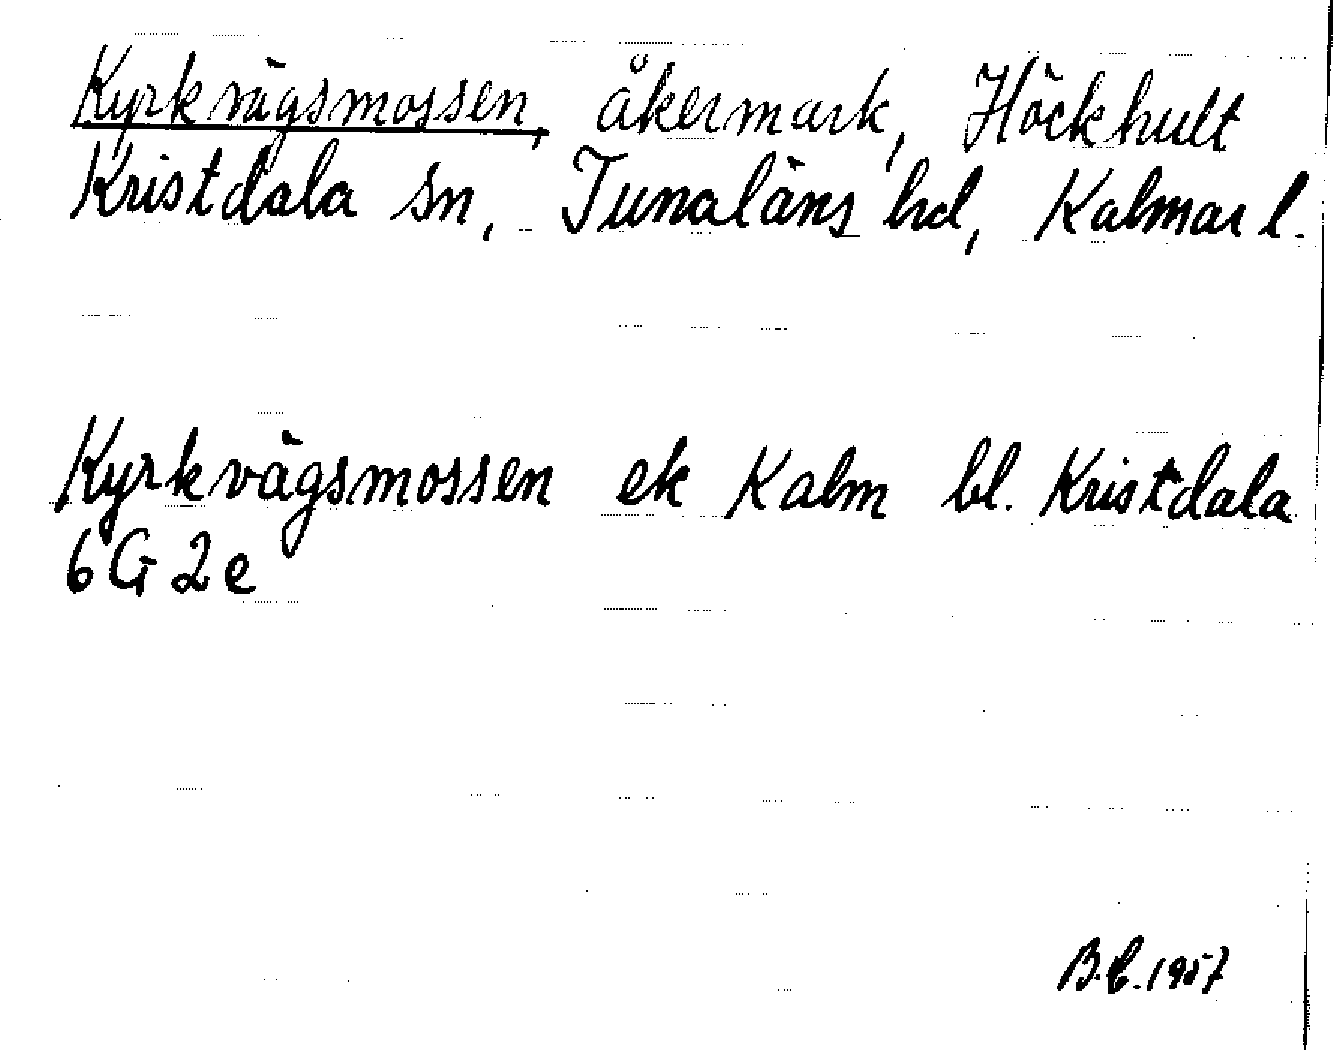 Kyrkvägsmossen, åkermark, Höckhult
Kristdala sn, Tunaläns hd, Kalmar l.
Kyrkvägsmossen ek Kalm bl. Kristdala
6G2e
B.C. 1957